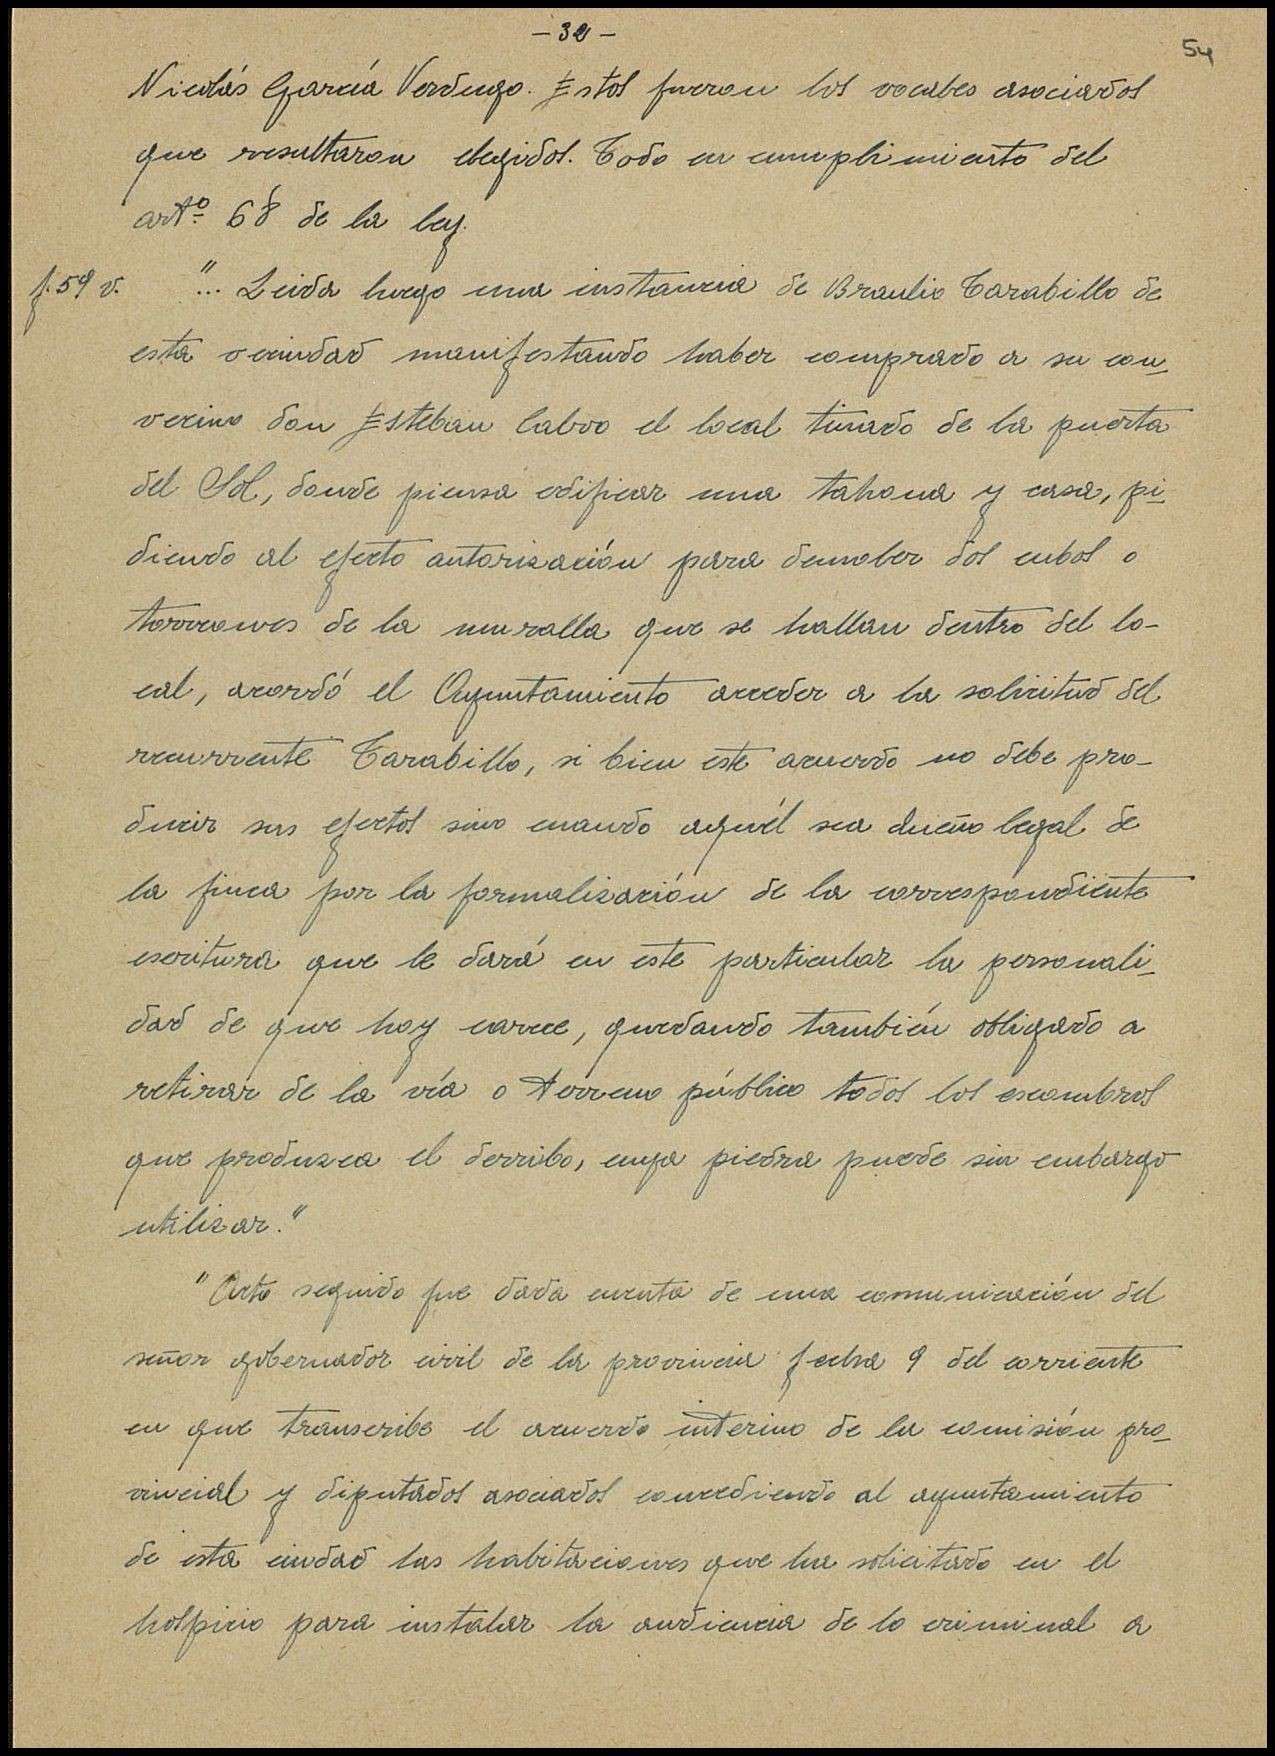 - 32 -
54
Nicolás García Verdugo. Estos fueron los vocales asociados
que resultaron elegidos. Todo en cumplimiento del
artº 68 de la ley.
f. 59 v.
"... Leida luego una instancia de Braulio Tarabillo de
esta vecindad manifestando haber comprado a su con-
vecino don Esteban Calvo el local titulado de la puerta
del Sol, donde piensa edificar una tahona y casa, pi-
diendo al efecto autorización para demoler dos cubos o
torreones de la muralla que se hallan dentro del lo-
cal, acordó el Ayuntamiento acceder a la solicitud del
recurrente Tarabillo, si bien este acuerdo no debe pro-
ducir sus efectos sino cuando aquél sea dueño legal de
la finca por la formalización de la correspondiente
escritura que le dará en este particular la personali-
dad de que hoy carece, quedando también obligado a
retirar de la vía o terreno público todos los escombros
que produzca el derribo, cuya piedra puede sin embargo
utilizar."
"Acto seguido fue dada cuenta de una comunicación del
señor gobernador civil de la provincia fecha 9 del corriente
en que transcribe el acuerdo interino de la comisión pro-
vincial y diputados asociados concediendo al ayuntamiento
de esta ciudad las habitaciones que ha solicitado en el
hospicio para instalar la audiencia de lo criminal a